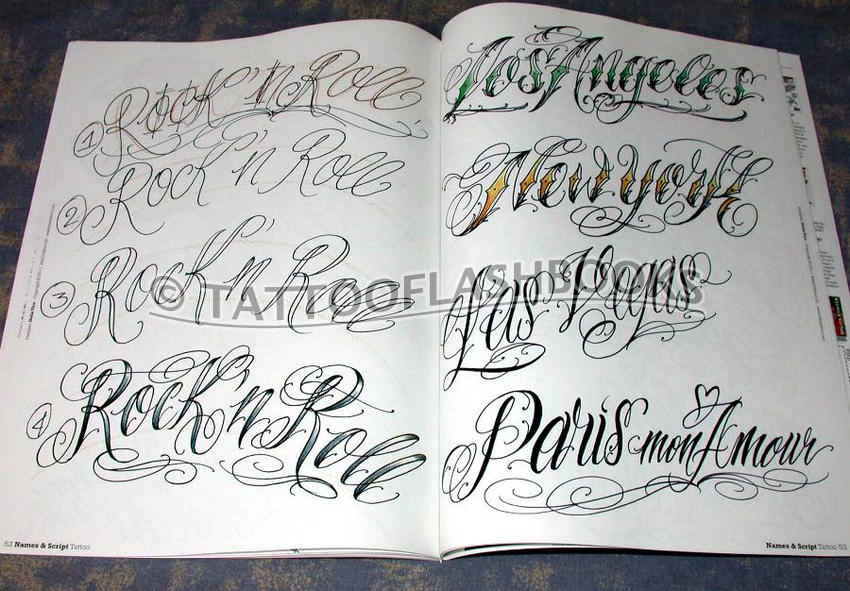 1 Rock'n Roll
2 Rock'n Roll
3 Rock'n Roll
4 Rock'n Roll
52 Names & Script Tattoo
Los Angeles
New york
Las Vegas
Paris mon Amour
Names & Script Tattoo 53
© TATTOOFLASHBOOKS